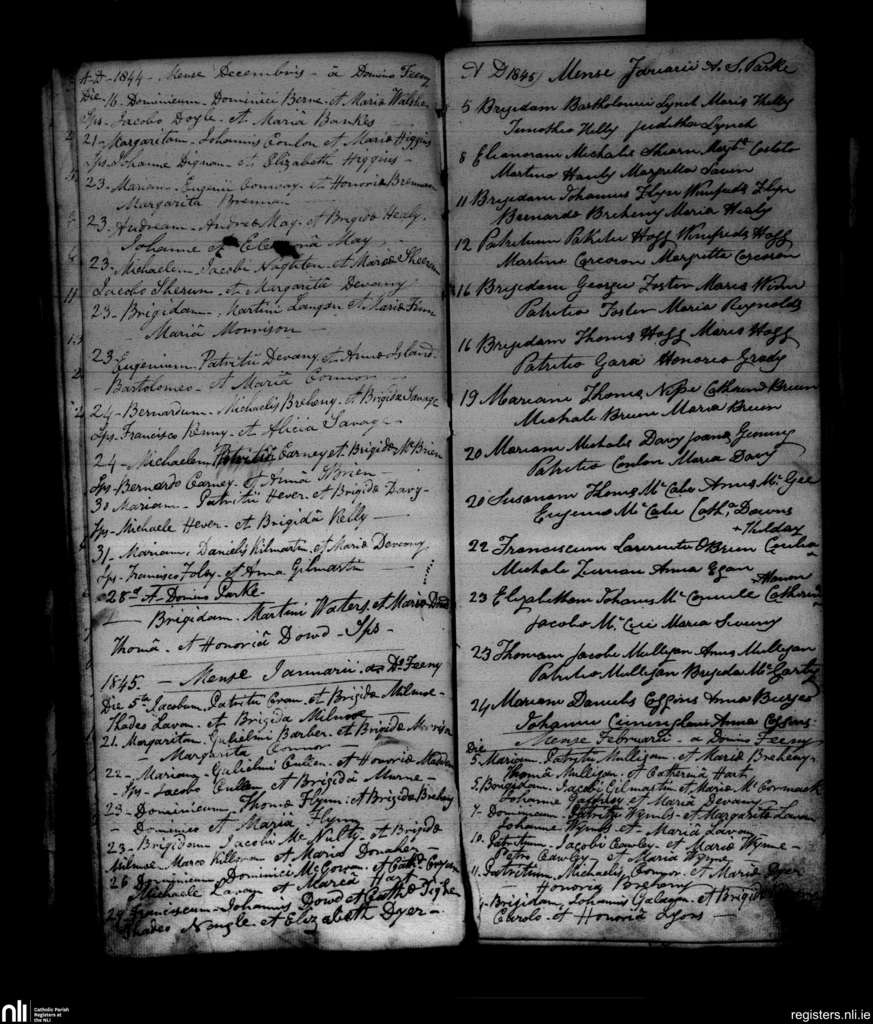 A D - 1844 - Mense Decembris - a Domino Feeny
Die 16 - Dominicum - Dominici Berne - et Maria Walshe
Sps - Jacobo Doyle - et Mariâ Bankes
21 - Margaritam - Johannis Conlon et Maria Higgins
Sps Johanne Dignan - et Elizabeth Higgins -
23 - Mariam - Eugenii Conway - et Honoria Brennan
Margarita Brennan
23 - Andream - Andrea May - et Brigida Healy -
Johanne et May
23 - Michaelem - Jacobi Naghten - et Maria Sheeran
Jacobo Sheran - et Margaritâ Devany
23 - Brigidam - Martini Langan et Maria Finn
- Mariâ Morrison -
23 - Eugenium - Patritii Devany et Anna Island -
- Bartolomeo - et Mariâ Connor -
24 - Bernardum - Michaelis Breheny - et Brigida Savage
Sps - Francisco Kenny - et Alicia Savage -
24 - Michaelem Patritii Carney et Brigida McBrien
Sps - Bernardo Carney - et Annâ OBrien -
30 - Mariam - Patritii Hever - et Brigida Davy -
Sps - Michaele Hever - et Brigidâ Kelly
31 - Mariam - Danielis Kilmartin - et Maria Devany
Sps - Francisco Foley - et Anna Gilmartin
28 - A - Domino Parke -
- Brigidam - Martini Waters, et Maria Dowd
Thomâ - et Honoriâ Dowd - Sps -
1845. - Mense Januarii - a Do Feeny
Die 5ta Jacobum - Patritii Cran - et Brigida Milmoe -
Thadeo Lavan - et Brigida Milmoe
21 - Margaritam - Gulielmi Barber - et Brigida
- Margarita Connor -
22 - Mariam - Gulielmi Cullen - et Honoria Madden
- Sps - Jacobo Cullen et Brigidâ Murne -
23 - Dominicum - Thoma Flynn - et Brigida Breheny
- Dominico et Mariâ Flynn
23 - Brigidam - Jacobi McNulty - et Brigida
Milmoe - Marco Killoran et Maria Donaher
26 Dominicum Dominici McGowan - et Cath
Michaele Lavan et Mariâ Hart
29 Franciscum - Johannis Dowd et Catha Tighe
Thadeo Nangle et Elizabeth Dyer -
A D 1845 Mense Januarii A. S. Parke
5 Brigidam Bartholomei Lynch Maria Kelly
Timotheo Kelly Juditha Lynch
8 Elianoram Michalis Margta Costelo
Martino Hanly Margretta
11 Brigidam Johannis Flyn Winifreda Flyn
Bernardo Breheny Maria Healy
12 Patritium Patritii Hoff Winifreda Hoff
Martino Corcoran Margretta Corcoran
16 Brigidam Georgii Foster Maria
Patritio Foster Maria Reynolds
16 Brigidam Thoma Hoff Maria Hoff
Patritio Gara Honoria Grady
19 Mariam Thoma Catharina Bruen
Michale Bruen Maria Bruen
20 Mariam Michalis Davy Joana
Patritio Conlon Maria Davy
20 Susanam Thoma McCabe Anna McGee
Eugenio McCabe Catha Downs
22 Franciscum Laurentii OBrien Cecilia
Michale Anna Egan
23 Elizabetham Johanis Catherina
Jacobo McCue Maria Sweeny
23 Thomam Jacobi Mulligan Anna Mulligan
Patritio Mulligan Brigida McCarty
24 Mariam Danielis Coggins Anna Burges
Johanne Anna Coggins
Mense Februarii - a Domino Feeny
Die
5 - Mariam - Patritii Mulligan - et Maria Breheny -
Thomâ Mulligan - et Catherinâ Hart
5 - Brigidam - Jacobi Gilmartin et Maria McCormack
Johanne et Mariâ Devany
7 - Dominicum - Patritii Wymbs - et Margarita Lavan
Johanne Wymbs et Mariâ Lavan
10 - Patritium - Jacobi Cawley - et Maria Wynne -
Petro Cawley - et Maria Wynne
11 - Patritium - Michaelis Connor - et Maria Dyer
- Honoria Breheny
Brigidam, Johannis Galagan - et Brigida
Carolo - et Honoriâ Lyons -
nli
Catholic Parish
Registers at
the NLI
registers.nli.ie